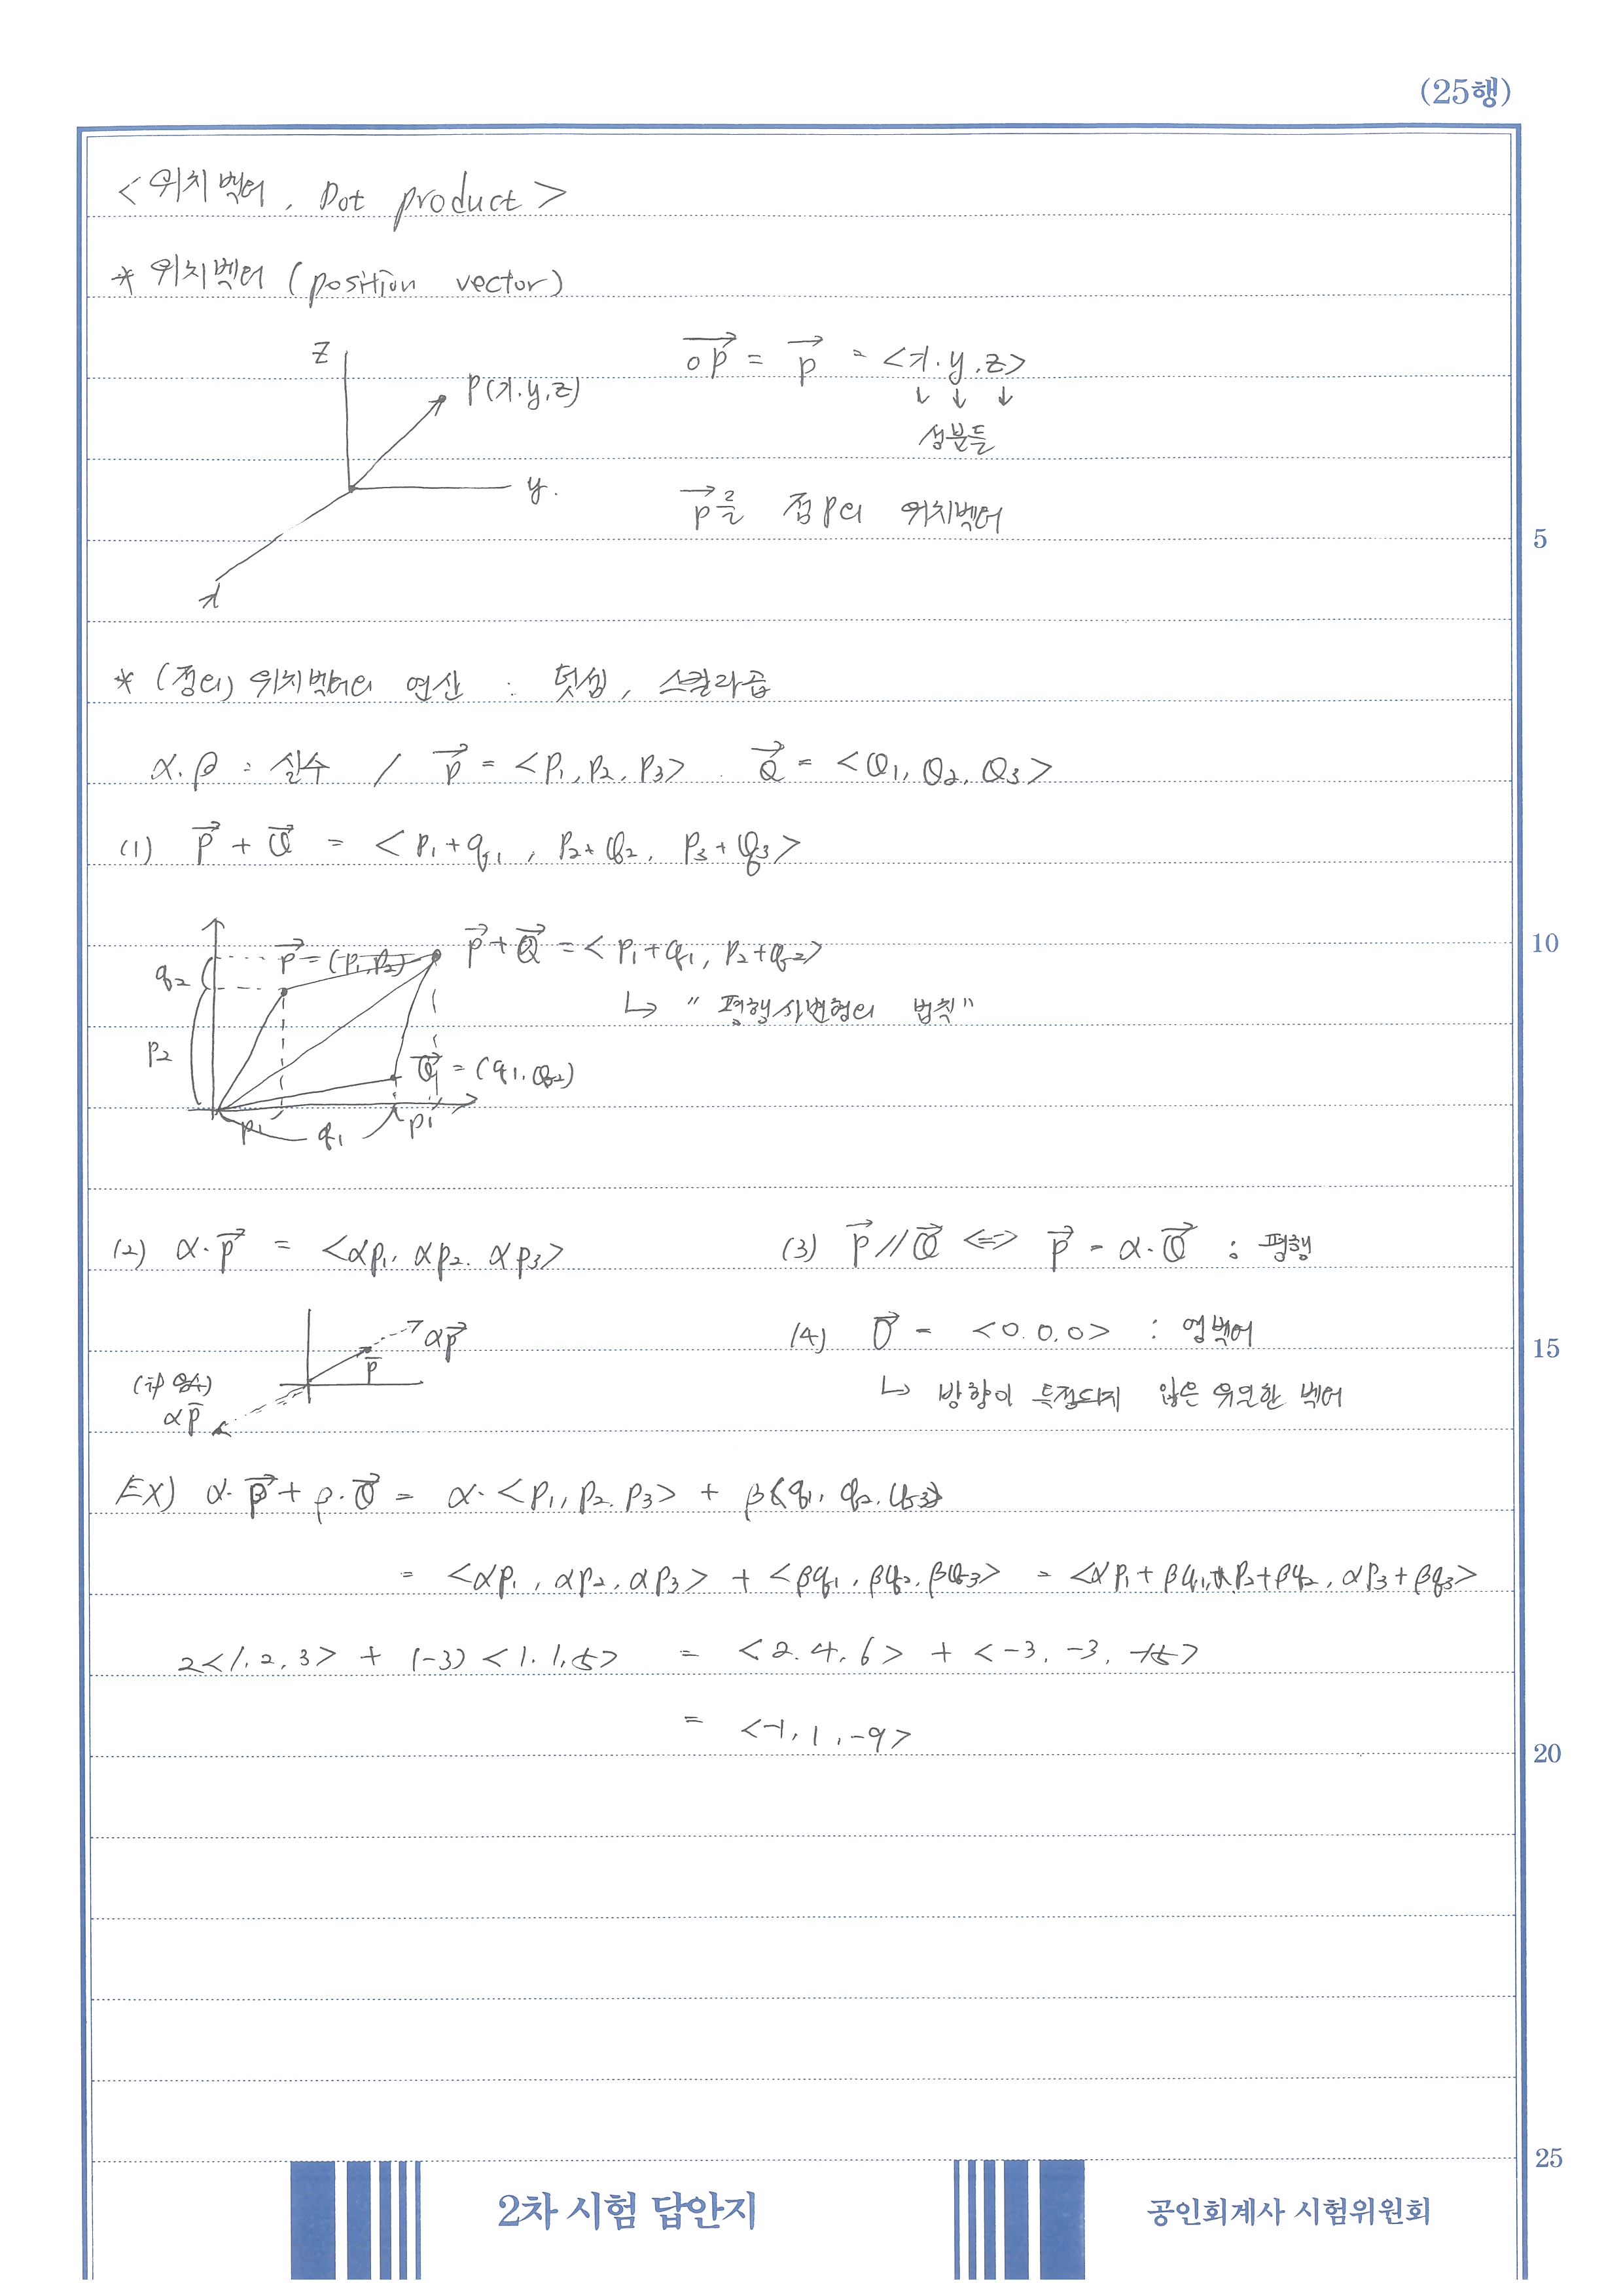 (25행)
<위치벡터, Dot product>
* 위치벡터 (position vector)
z
P(x.y.z)
y.
x
→OP = →p = <x.y.z>
↓ ↓ ↓
성분들
→p를 점P의 위치벡터
5
* (정의) 위치벡터의 연산 : 덧셈, 스칼라곱
α.β : 실수 / →p = <p1, p2, p3> . →Q = <Q1, Q2, Q3>
(1) →p + →Q = <p1+q1, p2+q2, p3+q3>
10
→p = (p1, p2)
→p + →Q = <p1+q1, p2+q2>
↳ "평행사변형의 법칙"
q2
p2
→Q = (q1, q2)
p1 q1 p1
(2) α·→p = <αp1. αp2. αp3>
(3) →p // →Q <=> →p = α·→Q : 평행
α→p
→p
α→p
(4) →O = <0.0.0> : 영벡터
15
↳ 방향이 특정되지 않은 유일한 벡터
EX) α·→p + β·→Q = α·<p1, p2. p3> + β<q1, q2. q3>
= <αp1, αp2, αp3> + <βq1, βq2, βq3> = <αp1+βq1, αp2+βq2, αp3+βq3>
2<1.2.3> + (-3)<1.1.5> = <2.4.6> + <-3. -3. -15>
= <-1, 1, -9>
20
25
2차 시험 답안지
공인회계사 시험위원회